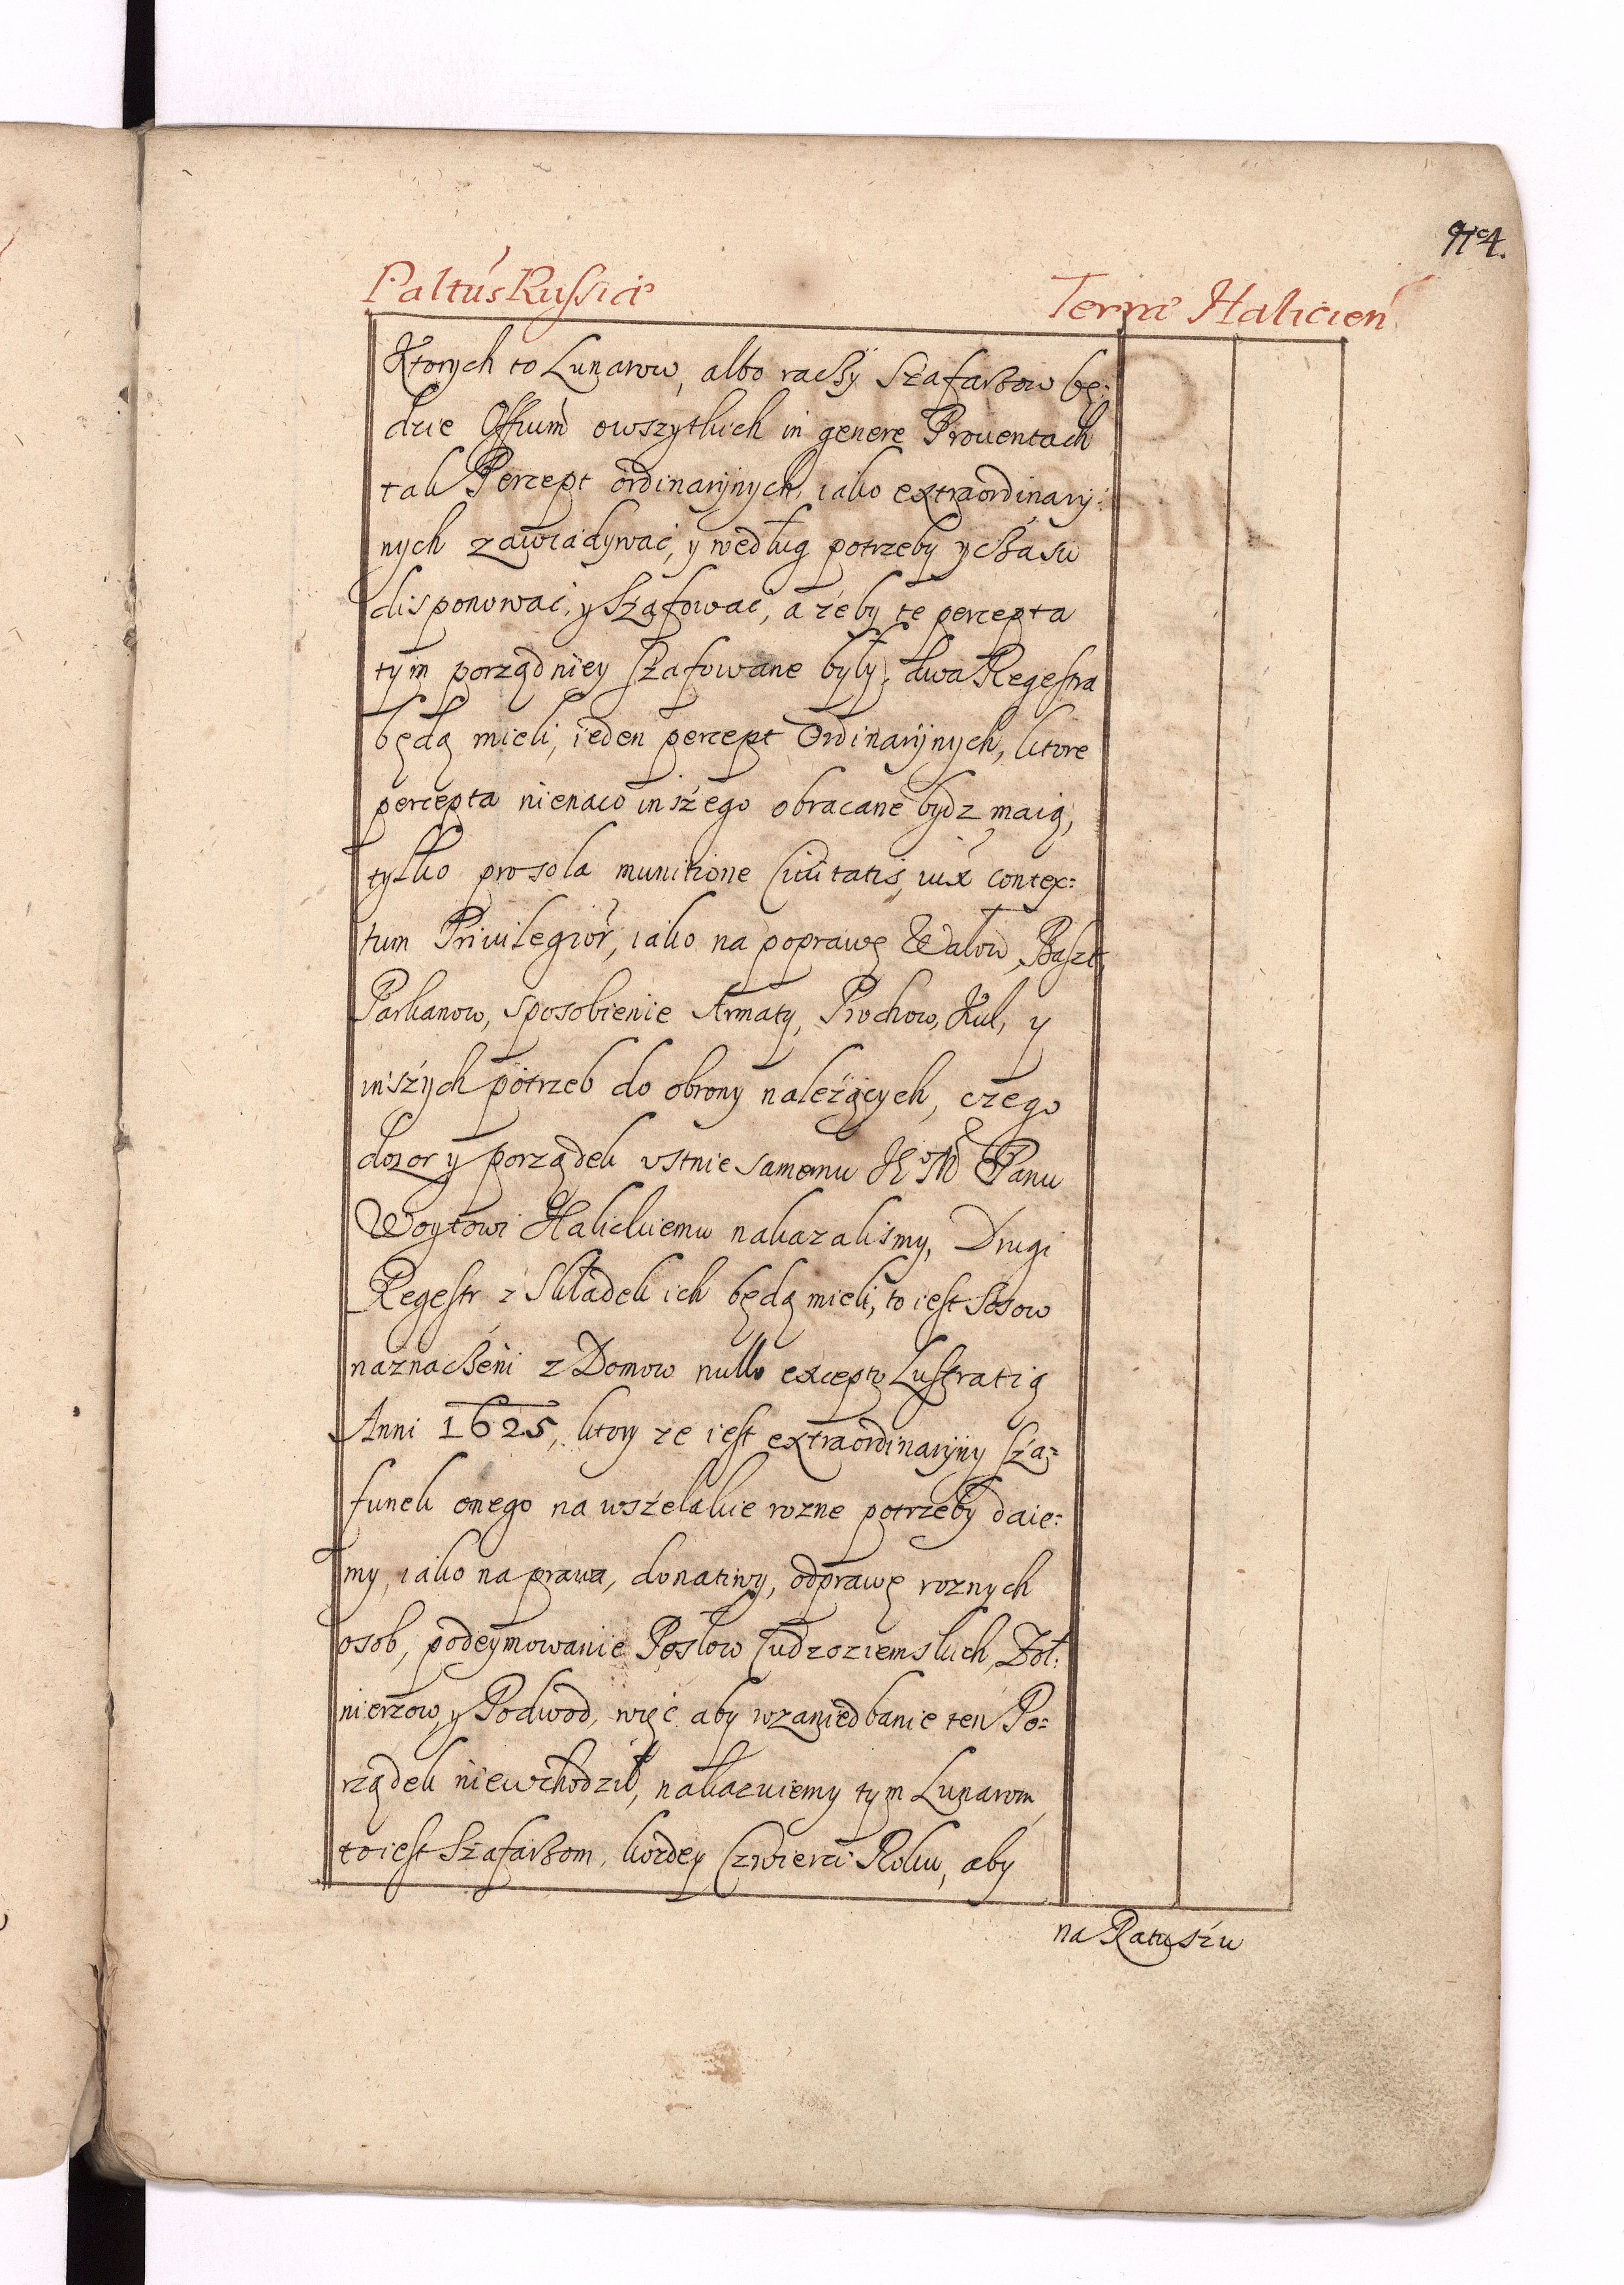 Paltus Russiæ Terræ Halicien
Ktorych to Lunarow, albo raczy Szafarzow bę:
dzie Offium owszytkich in genere Prouentach
tak Percept ordinaryinych, iako extraordinary:
nych zawiadywać, y według potrzeby y czasu
disponować, y szafować, a żeby te percepta
tym porządniey szafowane były, dwa Regestra
będą mieli, ieden percept Ordinaryinych, ktore
percepta nienaco inszego obracane bydz maią,
tylko pro sola munitione Ciuitatis, iux contex=
tum Priuilegior, iako na poprawę Wałow, Baszt,
Parkanow, sposobienie Armaty, Prochow, Kul, y
inszych potrzeb do obrony należących, czego
dozor y porządek vstnie samemu Panu
Woytowi Halickiemu nakazalismy, Drugi
Regestr z Składek ich będą mieli, to iest Szosow
naznaczeni z Domow nullo excepto Lustratią
Anni 1625, ktory ze iest extraordinaryiny sza=
funek onego na wszelakie rozne potrzeby daie:
my, iako na prawa, donatiwy, odprawę roznych
osob, podeymowanie Posłow Cudzoziemskich, Żoł:
nierzow, y Podwod, więc aby wzaniedbanie ten Po=
rządek niewchodził, nakazuiemy tym Lunarom,
to iest Szafarzom, kozdey Czwierci Roku, aby
na Ratuszu